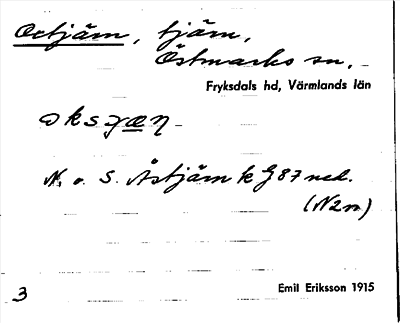 Oxtjärn, tjärn,
Östmarks sn, –
Fryksdals hd, Värmlands län
N. o. S. Åstjärn k G87 ned.
(N2m)
3
Emil Eriksson 1915